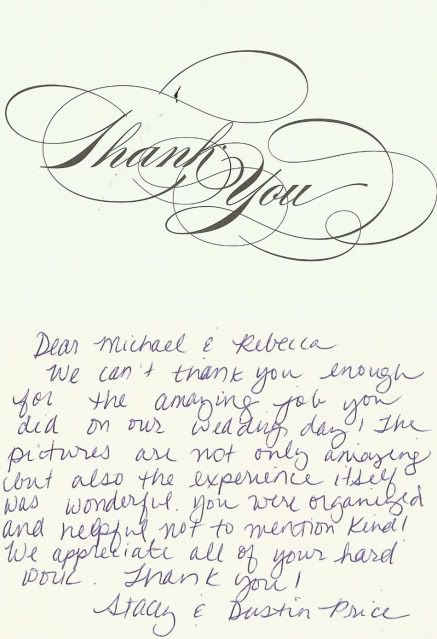 Thank You
Dear Michael & Rebecca
We can't thank you enough
for the amazing job you
did on our wedding day! The
pictures are not only amazing
but also the experience itself
was wonderful. You were organized
and helpful, not to mention kind!
We appreciate all of your hard
work. Thank you!
Stacey & Dustin Price